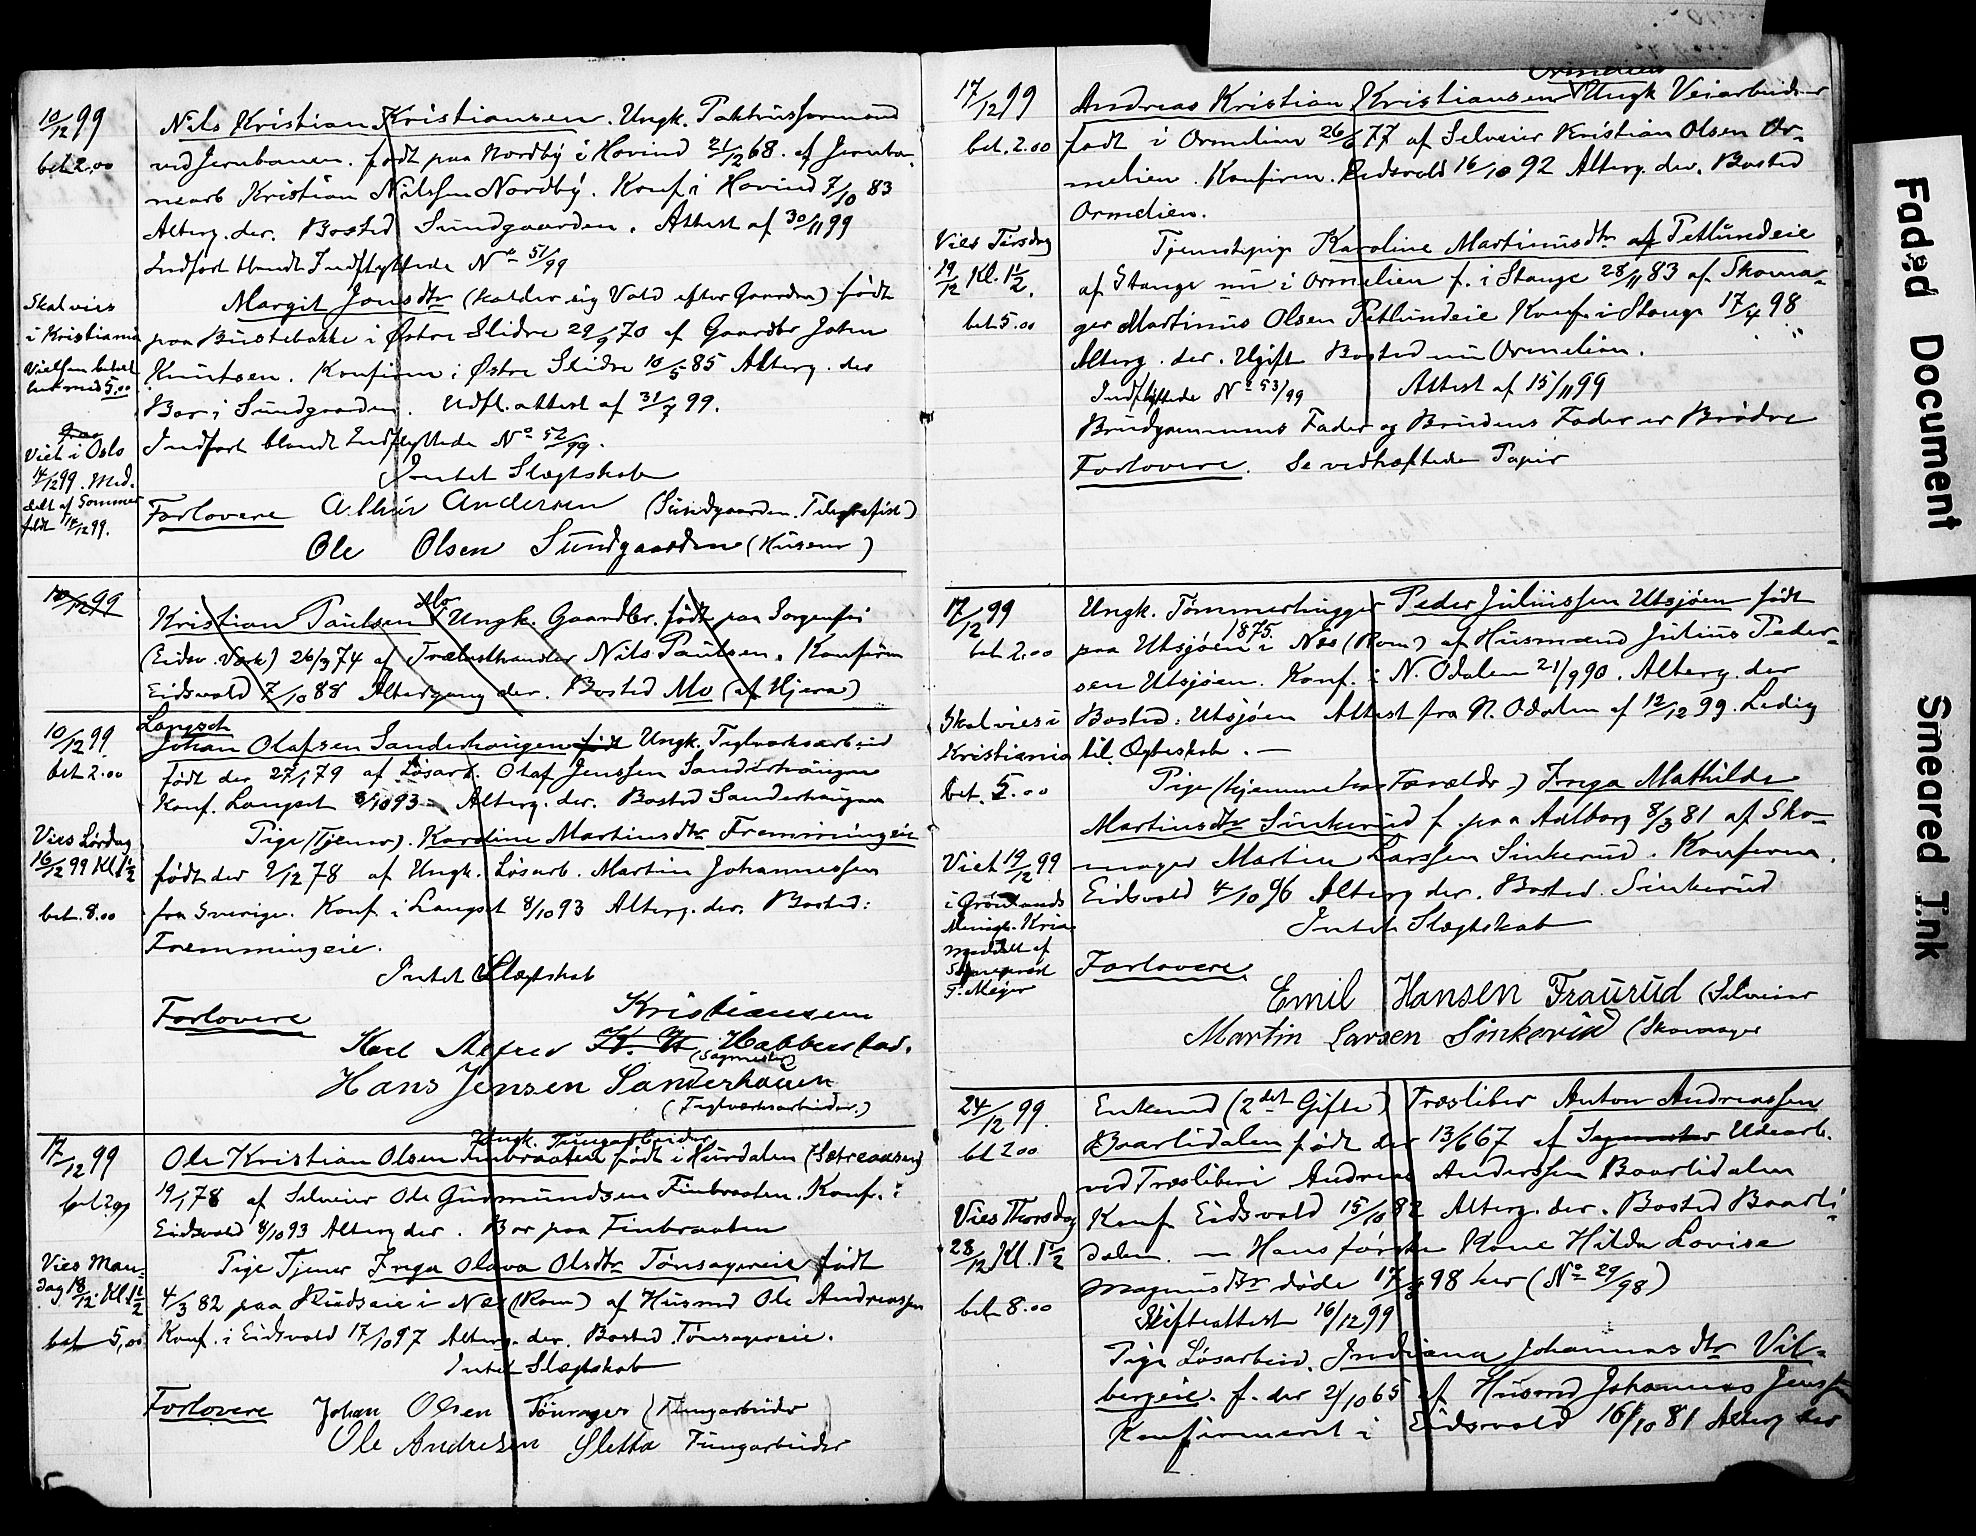 10/12 99
bet 2.00
Nils Kristian Kristiansen. Ungk. Pakhusformand
ved Jernbanen. født paa Nordby i Hovind 21/12 68. af Jernba-
nearb Kristian Nilssen Nordby. Konf i Hovind 7/10 83
Alterg. der. Bosted Sundgaarden. Attest af 30/11 99
Indført blandt Indflyttede No 51/99
Skal vies
i Kristiania
Vielsen betalt
med 5.00
Margit Jonsdtr (kalder sig Vold efter Gaarden) født
paa Bustebakke i Østre Slidre 29/9 70 af Gaardbr John
Knutsen. Konfirm i Østre Slidre 10/5 85 Alterg. der
Bor i Sundgaarden. Udfl. attest af 31/7 99.
Indført blandt Indflyttede No 52/99.
Viet i Oslo
14/12 99. Med-
delt af Sommer
feldt 14/12 99.
Intet Slægtskab
Forlovere Althur Andersen (Sundgaarden. Telegrafist)
Ole Olsen Sundgaarden (Huseier)
10/12 99
Kristian Paulsen Mo Ungk. Gaardbr. født paa Sorgenfri
(Eidsv. Værk) 26/3 74 af Trælasthandler Nils Paulsen. Konfirm
Eidsvold 7/10 88 Altergang der. Bosted Mo (af Hjera)
10/12 99
bet 2.00
Langset
Johan Olafsen Sanderhaugen født Ungk. Teglværksarbeid
født der 27/1 79 af Løsarb. Olaf Jenssen Sanderhaugen
Konf. Langset 8/10 93 - Alterg. der. Bosted Sanderhaugen
Vies Lørdag
16/12 99 Kl. 1 1/2
bet. 8.00
Pige (Tjener). Karoline Martinsdtr Fremmingeie
født der 9/12 78 af Ungk. Løsarb. Martin Johannessen
fra Sverige. Konf. i Langset 8/10 93 Alterg. der. Bosted:
Fremmingeie.
Intet Slægtskab
Forlovere
Kristiansen
Karl Alfred K. N. Habberstad.
(Sagmester)
Hans Jensen Sanderhauen
(Teglværksarbeider.)
17/12 99
bet 2.00
Ungk. Tungarbeider
Ole Kristian Olsen Finbraaten født i Hurdalen (Sætreaasen)
19/1 78 af Selveier Ole Gudmundsen Finbraaten. Konf. i
Eidsvold 8/10 93 Alterg der. Bor paa Finbraaten
Vies Man-
dag 18/12. Kl. 1 1/2
bet 5,00
Pige Tjener Inga Olava Olsdtr Tønsagereie født
4/3 82 paa Rudseie i Nes (Rom) af Husmd Ole Andreassen
Konf. i Eidsvold 17/10 97 Alterg. der. Bosted Tønsagereie.
Intet Slægtskab
Forlovere Johan Olsen Tönsager (Tungarbeider)
Ole Andresen Sletta Tungarbeider
17/12 99
bet. 2.00
Ormelien
Andreas Kristian Kristiansen Ungk Veiarbeider
født i Ormelien 26/6 77 af Selveier Kristian Olsen Or-
melien. Konfirm. Eidsvold 16/10 92 Alterg. der. Bosted
Ormelien.
Vies Tirsdag
19/12 Kl. 1 1/2.
bet 5.00
Tjenestepige Karoline Martinusdtr af Petlundeie
af Stange nu i Ormelien f. i Stange 28/11 83 af Skoma-
ger Martinus Olsen Petlundeie Konf. i Stange 17/4 98
Alterg. der. Ugift Bosted nu Ormelien.
Indflyttede No 53/99 Attest af 15/11 99
Brudgommens Fader og Brudens Fader er Brødre
Forlovere. Se vedhæftede Papir
17/12 99
bet. 2.00
Ungk. Tømmerhugger Peder Juliussen Utsjøen født
1875.
paa Utsjøen i Nes (Rom) af Husmand Julius Peder-
sen Utsjøen. Konf. i N. Odalen 21/9 90. Alterg. der
Bosted: Utsjøen Attest fra N. Odalen af 12/12 99. Ledig
til Ægteskab. —
Skal vies i
Kristiania
bet. 5.00
Pige (hjemme hos Forældr.) Inga Mathilde
Martinsdtr Sinkerud f. paa Aalborg 8/3 81 af Sko-
mager Martin Larssen Sinkerud. Konferm.
Eidsvold 4/10 96 Alterg der. Bosted. Sinkerud
Viet 19/12 99
i Grønlands
Menigh. Kria
meddelt af
Sognepræst
T. Meyer
Intet Slægtskab
Forlovere.
Emil Hansen Fraurud (Selveier
Martin Larsen Sinkerud (Skomager
24/12 99.
bet 2 00
Enkemd (2det Gifte) Træsliber Anton Andreassen
Baarlidalen født der 13/6 67 af Sagmester Udearb.
ved Træsliberi Andreas Anderssen Baarlidalen
Konf. Eidsvold 15/10 82 Alterg. der. Bosted Baarli-
dalen. — Hans første Kone Hilda Lovise
Magnusdtr døde 17/3 98 her (No 29/98)
Skifteattest 16/12 99
Vies Thorsdag
28/12 Kl. 1 1/2
bet 8.00
Pige Løsarbeid. Indiana Johannesdtr Vil-
bergeie. f. der 2/10 65 af Husmd Johannes Jenssen
Konfirmeret i Eidsvold 16/10 81 Alterg der
Faded Document
Smeared Ink